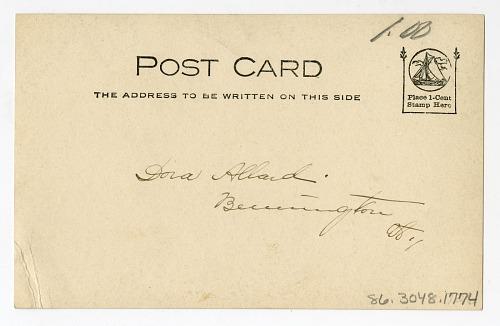 1.00
POST CARD
THE ADDRESS TO BE WRITTEN ON THIS SIDE
Place 1-Cent
Stamp Here
Dora Allard.
Bennington
Vt.,
86.3048.1774